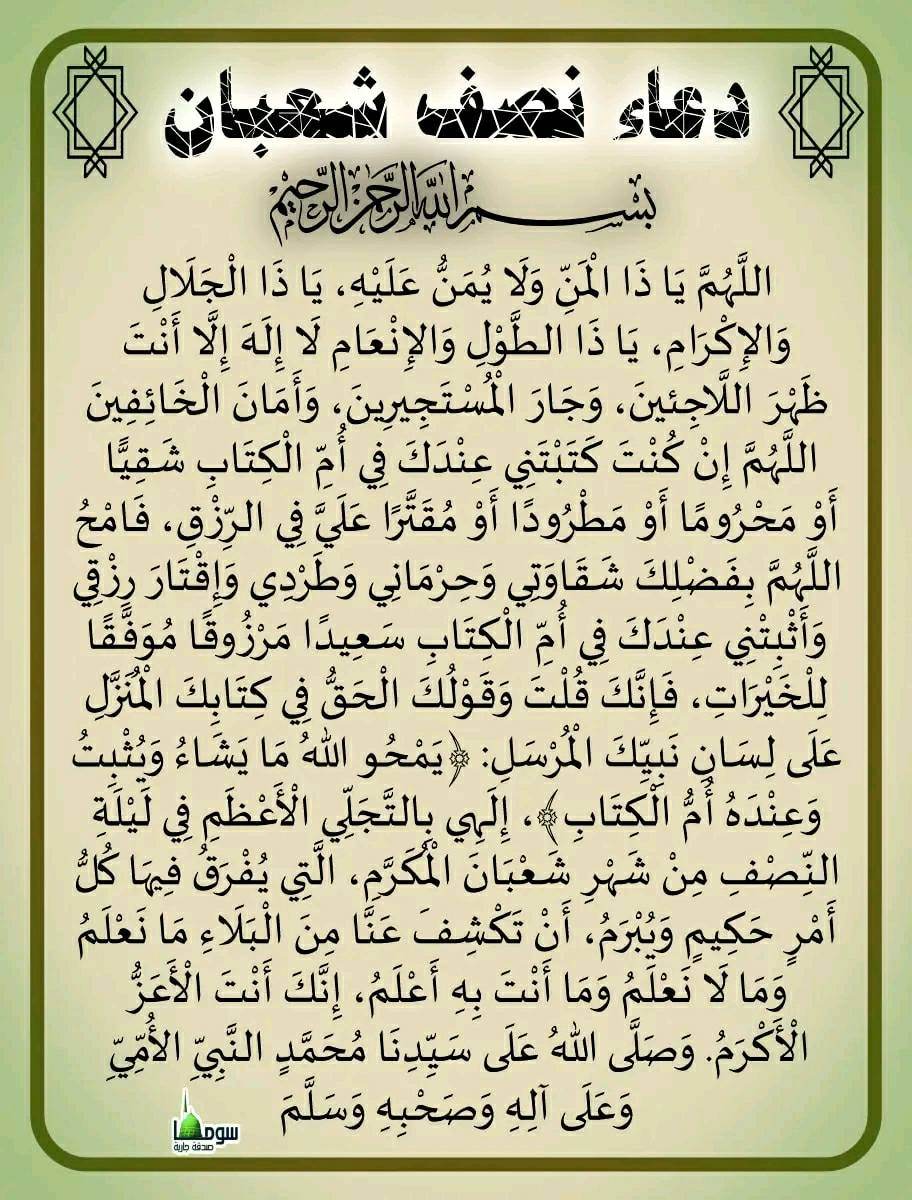 دعاء نصف شعبان
بسم الله الرحمن الرحيم
اللَّهُمَّ يَا ذَا الْمَنِّ وَلَا يُمَنُّ عَلَيْهِ، يَا ذَا الْجَلَالِ
وَالإِكْرَامِ، يَا ذَا الطَّوْلِ وَالإِنْعَامِ لَا إِلَهَ إِلَّا أَنْتَ
ظَهْرَ اللَّاجِئينَ، وَجَارَ الْمُسْتَجِيرِينَ، وَأَمَانَ الْخَائِفِينَ
اللَّهُمَّ إِنْ كُنْتَ كَتَبْتَنِي عِنْدَكَ فِي أُمِّ الْكِتَابِ شَقِيًّا
أَوْ مَحْرُومًا أَوْ مَطْرُودًا أَوْ مُقَتَّرًا عَلَيَّ فِي الرِّزْقِ، فَامْحُ
اللَّهُمَّ بِفَضْلِكَ شَقَاوَتِي وَحِرْمَانِي وَطَرْدِي وَإِقْتَارَ رِزْقِي
وَأَثْبِتْنِي عِنْدَكَ فِي أُمِّ الْكِتَابِ سَعِيدًا مَرْزُوقًا مُوَفَّقًا
لِلْخَيْرَاتِ، فَإِنَّكَ قُلْتَ وَقَوْلُكَ الْحَقُّ فِي كِتَابِكَ الْمُنَزَّلِ
عَلَى لِسَانِ نَبِيِّكَ الْمُرْسَلِ: ﴿يَمْحُو اللهُ مَا يَشَاءُ وَيُثْبِتُ
وَعِنْدَهُ أُمُّ الْكِتَابِ﴾، إِلَهِي بِالتَّجَلِّي الْأَعْظَمِ فِي لَيْلَةِ
النِّصْفِ مِنْ شَهْرِ شَعْبَانَ الْمُكَرَّمِ، الَّتِي يُفْرَقُ فِيهَا كُلُّ
أَمْرٍ حَكِيمٍ وَيُبْرَمُ، أَنْ تَكْشِفَ عَنَّا مِنَ الْبَلَاءِ مَا نَعْلَمُ
وَمَا لَا نَعْلَمُ وَمَا أَنْتَ بِهِ أَعْلَمُ، إِنَّكَ أَنْتَ الْأَعَزُّ
الْأَكْرَمُ. وَصَلَّى اللهُ عَلَى سَيِّدِنَا مُحَمَّدٍ النَّبِيِّ الأُمِّيِّ
وَعَلَى آلِهِ وَصَحْبِهِ وَسَلَّمَ
صدقة جارية